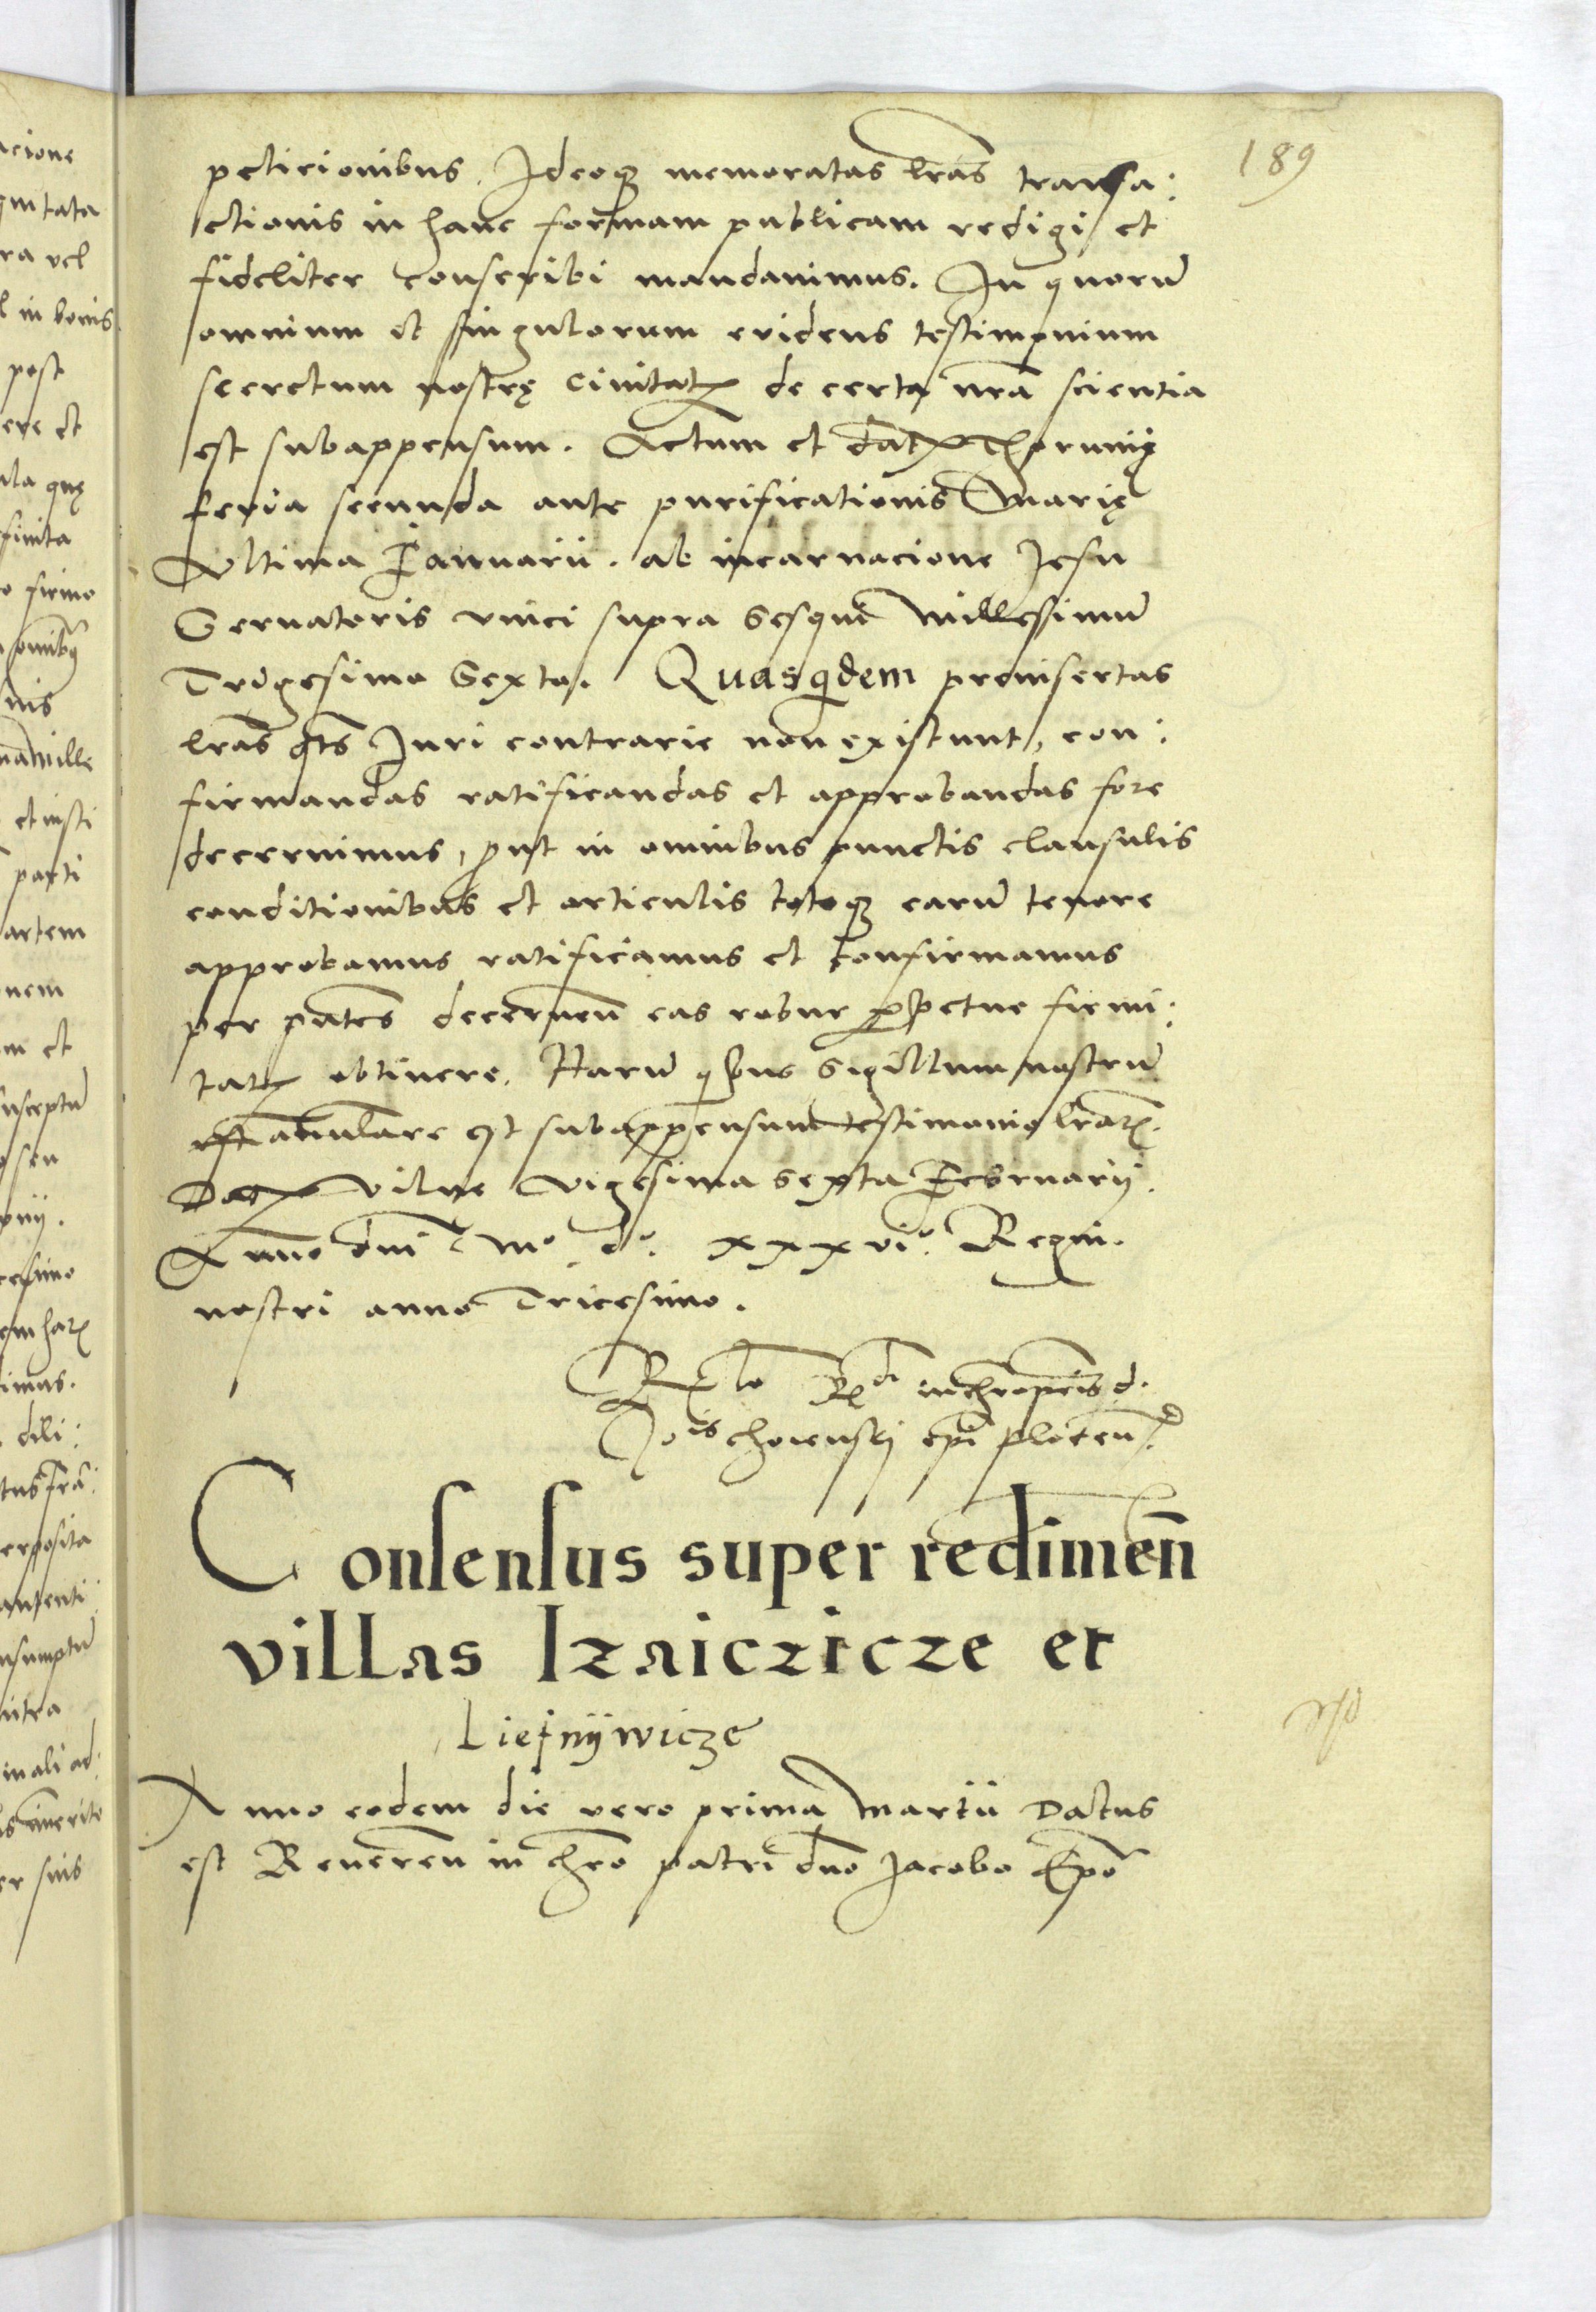 189
peticionibus. Ideoq3 memoratas lras transa:
ctionis in hanc formam publicam redigi et
fideliter conscribi mandavimus. In quorū
omnium et singulorum evidens testimonium
secretum nostrę civitatꝭ de certa nra scientia
est subappensum. Actum et datꝭ Thorunię
feria secunda ante purificationis Marię
Ultima Januarii. ab incarnacione Jesu
Servatoris unici supra sesqui millessimū
Trigesimo Sexto. Quasqidem preinsertas
lras qts Juri contrarie non existunt, con:
firmandas ratificandas et approbandas fore
decrevimus, prout in omnibus punctis clausulis
conditionibus et articulis totoq3 earū tenore
approbamus ratificamus et confirmamus
per pntes decernen eas robur perpetue firmi:
tatꝭ obtinere. Harū quibus Sigillum nostrū
anulare est subappensum testimonio lrarꝝ.
Datꝭ Vilne Vigesima sexta Februarij.
Anno dni Mo. do. xxxvio. Regni.
nostri anno Tricesimo.
Rlo Rdi in chro pris d.
Jois choiensky epi plocen.
Consensus super redimen̄
villas Izaiczicze et
Liesnywicze
Anno eodem die vero prima Martii Datus
est Reveren in chro patri dno Jacobo Epo
acione
ra vel
in bonis
post
ere et
ula quę
finita
firmo
omibus
nis
et insti
parti
artem
nem
m et
sen
dili:
intra